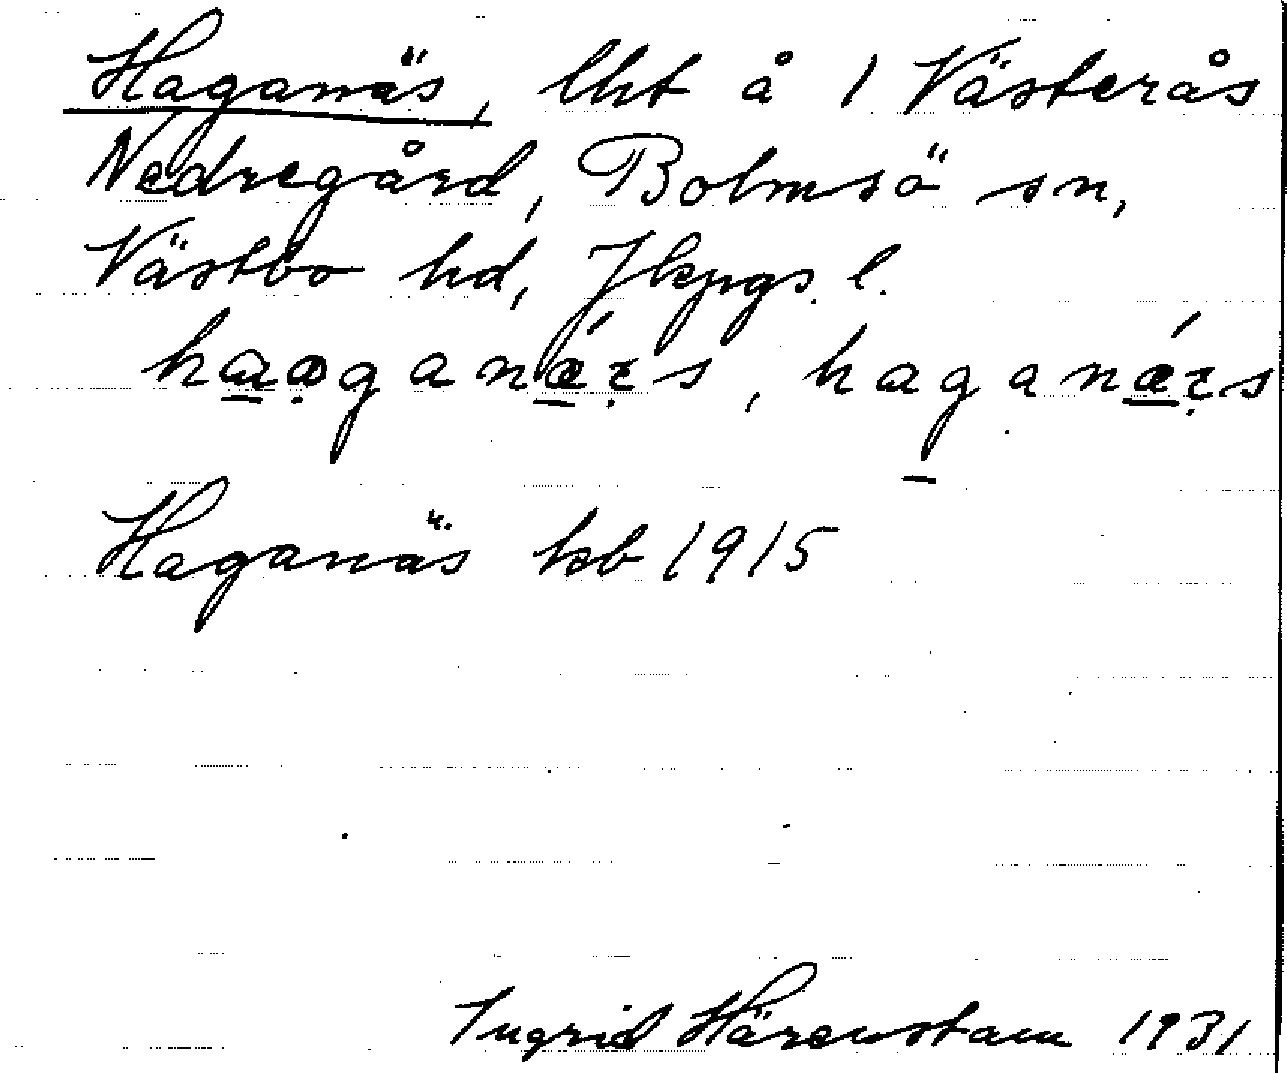 Haganäs, lht å 1 Västerås
Nedregård, Bolmsö sn,
Västbo hd, Jkpgs. l.
Haganäs kb 1915
Ingrid Härenstam 1931